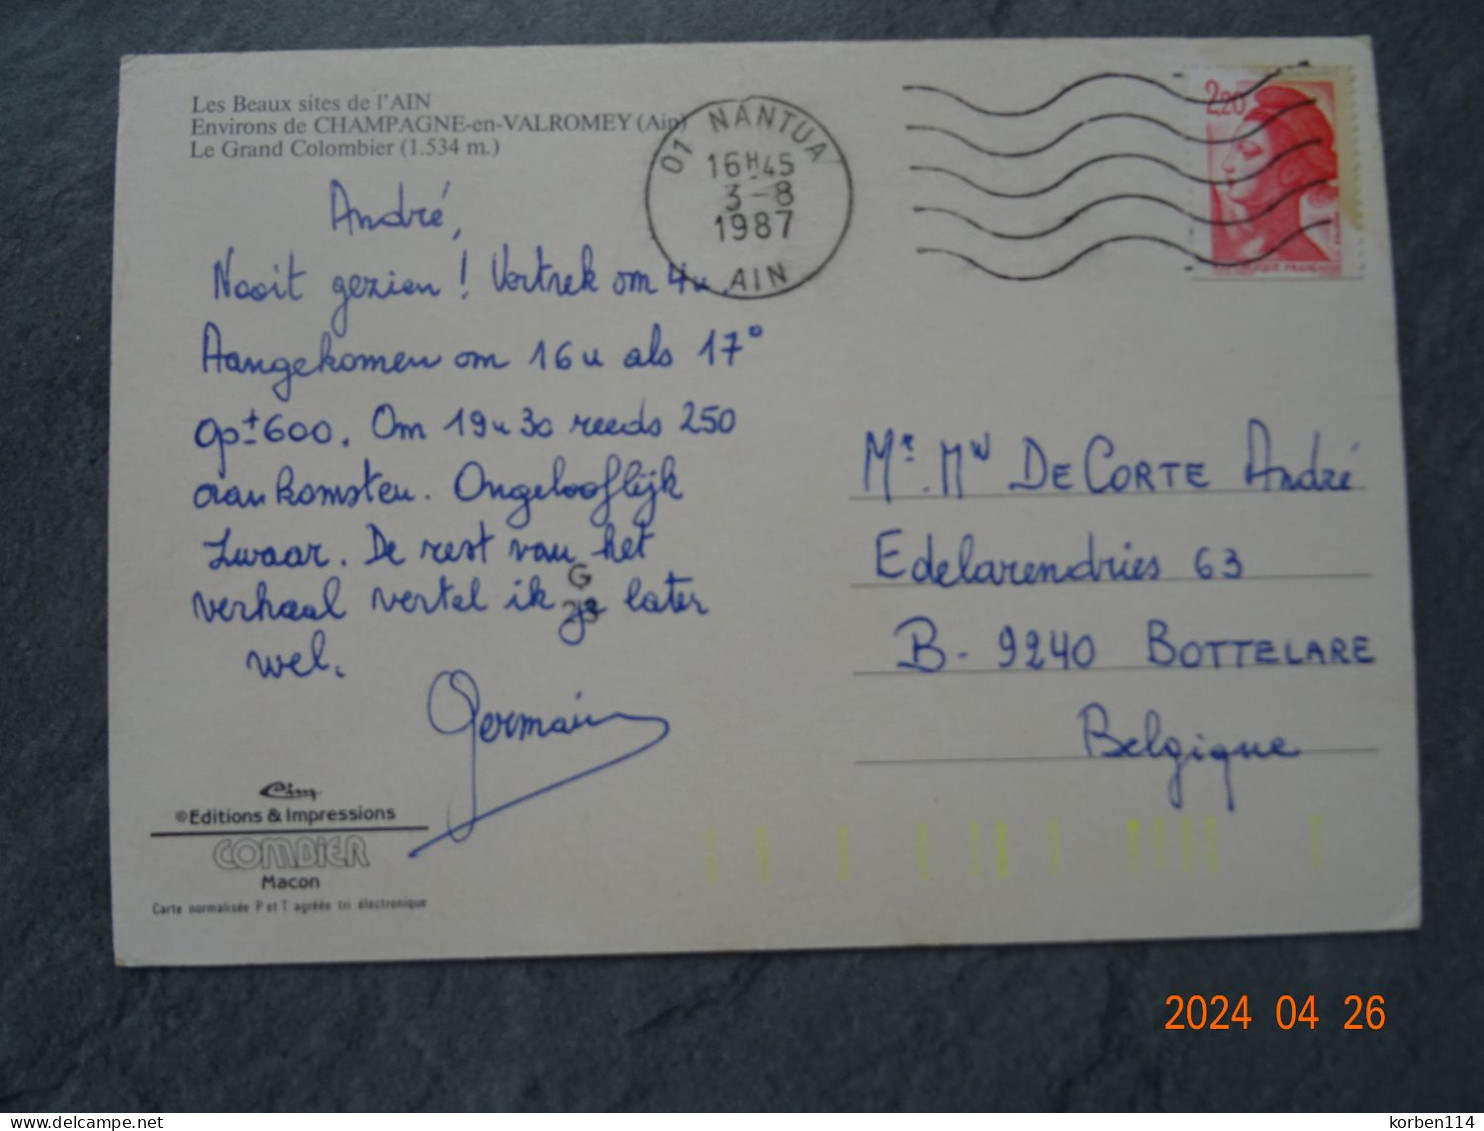 Les Beaux sites de l'AIN
Environs de CHAMPAGNE-en-VALROMEY (Ain)
Le Grand Colombier (1.534 m.)
01 NANTUA
16H45
3-8
1987
AIN
2,20
André,
Nooit gezien! Vertrek om 4u
Aangekomen om 16u als 17°
op ± 600. Om 19u30 reeds 250
aankomsten. Ongelooflijk
Zwaar. De rest van het
verhaal vertel ik je later
wel.
Germain
G
23
Mr. Mw DE CORTE André
Edelarendries 63
B-9240 BOTTELARE
Belgique
Cim
©Editions & Impressions
COMBIER
Macon
Carte normalisée P et T agréée tri électronique
2024 04 26
delcampe.net
korben114